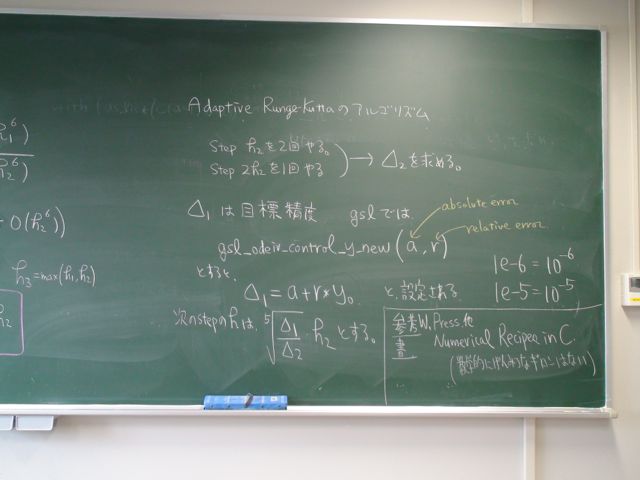 Adaptive Runge-Kuttaのアルゴリズム
Step h₂を2回やる。
Step 2h₂を1回やる
→ Δ₂を求める。
Δ₁は目標精度 gslでは
absolute error
relative error
gsl_odeiv_control_y_new(a, r)
とすると、
Δ₁=a+r*y₀ と、設定される
1e-6=10⁻⁶
1e-5=10⁻⁵
次のstepのhは、⁵√(Δ₁/Δ₂)・h₂ とする。
参考書 W. Press.他
Numerical Recipee in C.
O(h₂⁶))
h₃=max(h₁,h₂)